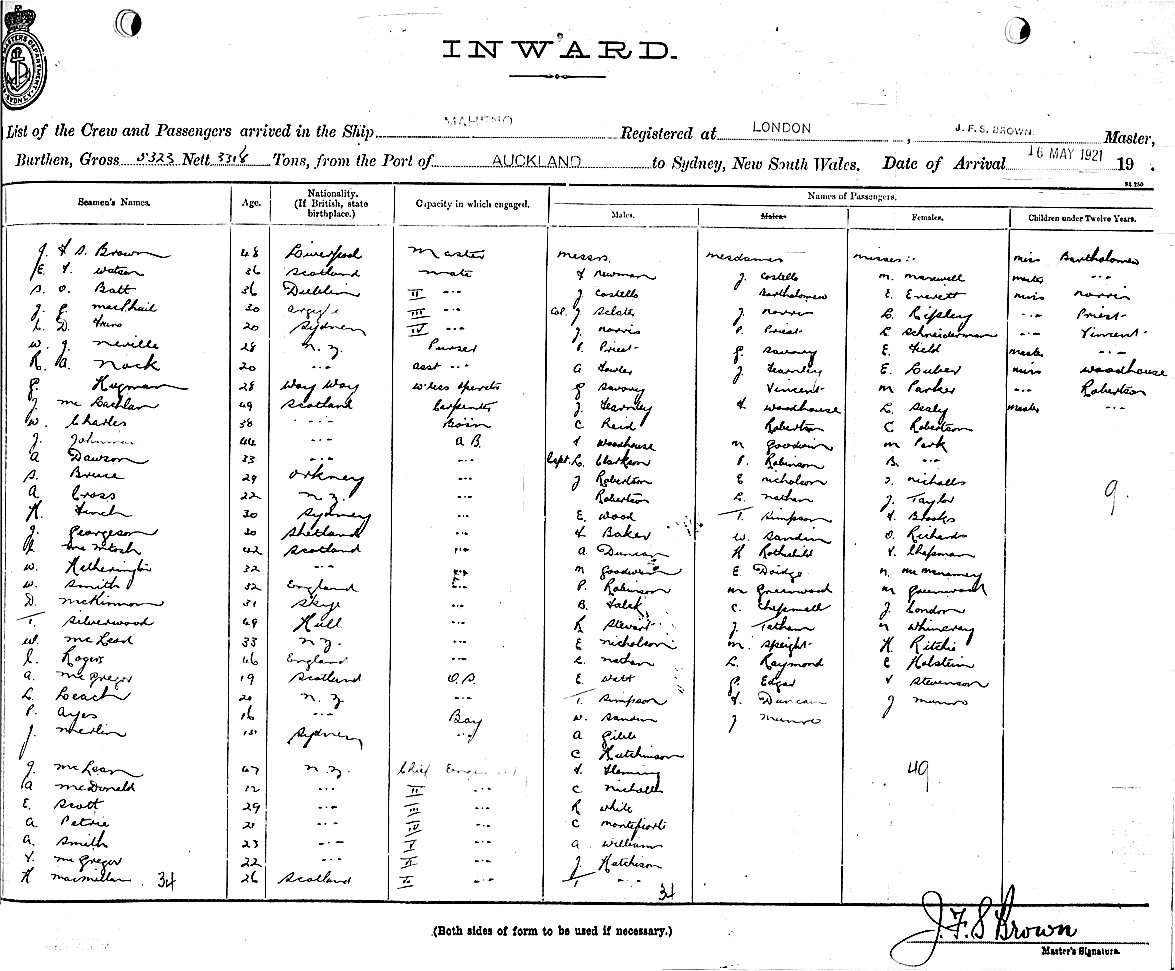 MASTERS DEPARTMENT
SYDNEY
INWARD.
List of the Crew and Passengers arrived in the Ship MAHENO Registered at LONDON, J. F. S. BROWN. Master,
Burthen, Gross 5323 Nett 3318 Tons, from the Port of AUCKLAND to Sydney, New South Wales. Date of Arrival 16 MAY 1921 19 .
Seamen's Names. Age. Nationality. (If British, state birthplace.) Capacity in which engaged. Names of Passengers.
Males. Males. Females. Children under Twelve Years.
J. F. S. Brown 48 Liverpool Master Messrs. Mesdames Misses:- Miss Bartholomew
E. Watson 36 Scotland Mate F Newman J. Costello M. Master -"-
S. O. Batt 36 Dublin II -"- J. Costello Bartholomew E. Everett Miss Norris
J. G. MacPhail 30 III -"- Col. J. J. Norris L. Ripley -"- Priest
L. D. 20 Sydney IV -"- J. Norris P. Priest L Schneiderman -"- Vincent
W. J. Neville 28 N.Z. Purser P. Priest G. Savory E. Field Master -"-
R. A. Nack 20 -"- Asst -"- A J. Fearnley E. Miss Woodhouse
G. Hugman 28 Woy Woy W'less Operator G Savory Vincent M Parker -"- Robertson
J. 49 Scotland Carpenter J. Fearnley F. Woodhouse L. Sealy Master -"-
W. Charles 38 -"- C Reid Robertson C Robertson
J. Johnman 44 -"- A.B. F Woodhouse M Goodwin M Park
A Dawson 33 -"- -"- Capt. L. Clarkson P. Robinson B. -"-
S. Bruce 29 Orkney -"- J Robertson E Nicholson Nicholls
A. Cross 22 N.Z. -"- Robertson L. Nathan J. Taylor 9.
H. Finch 30 Sydney -"- E. Wood T. Simpson F. Brooks
J. Georgeson 30 Shetland -"- F Baker W. Sandin O. Richards
McIntosh 42 Scotland -"- A Duncan H Rothchild V. Chapman
W. Hetherington 32 -"- N Goodwin E. Doidge N. McMenamey
W. Smith 32 England P. Robinson M Greenwood M Greenwood
D. McKinnon 31 Skye -"- B. C. J. London
T. Silverwood 49 Hull -"- R Stewart J. Tatham N Whineray
W. McLeod 33 N.Z. -"- E Nicholson M. Speight H. Ritchie
Rogers 46 England -"- L. Nathan L. Raymond E Holstein
A. McGregor 19 Scotland O.S. E. Witt P. Edgar F Stevenson
L. Leach 20 N.Z. -"- T. Simpson F. Duncan J Munro
P. Ayes 16 -"- Boy W. Sandin J Munro
J. Sydney -"- A
C Hutchinson
J. McLean 47 N.Z. Chief F. Fleming 49
A McDonald -"- II -"- C Nicholls
E. Scott 29 -"- III -"- R White
A Petrie 21 -"- IV -"- C
A. Smith 23 -"- V -"- A William
V. McGregor 22 -"- VI -"- J Hutchison
H Macmillan 34 26 Scotland -"- T -"-
34
(Both sides of form to be used if necessary.)
J. F. S Brown
Master's Signature.